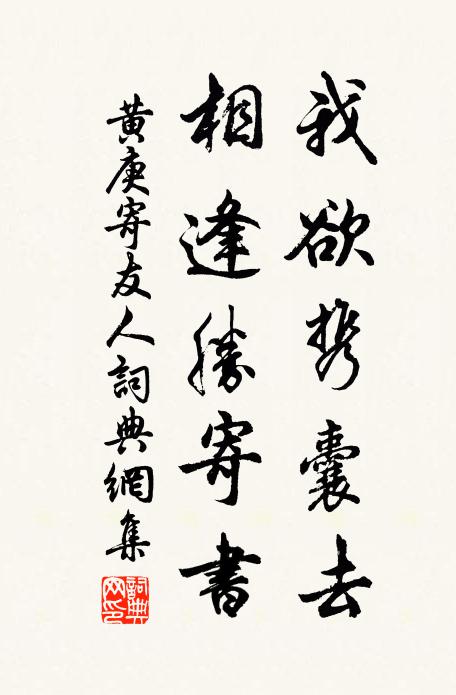 我欲携囊去
相逢勝寄書
黄庚寄友人詞典網集
詞典
网印